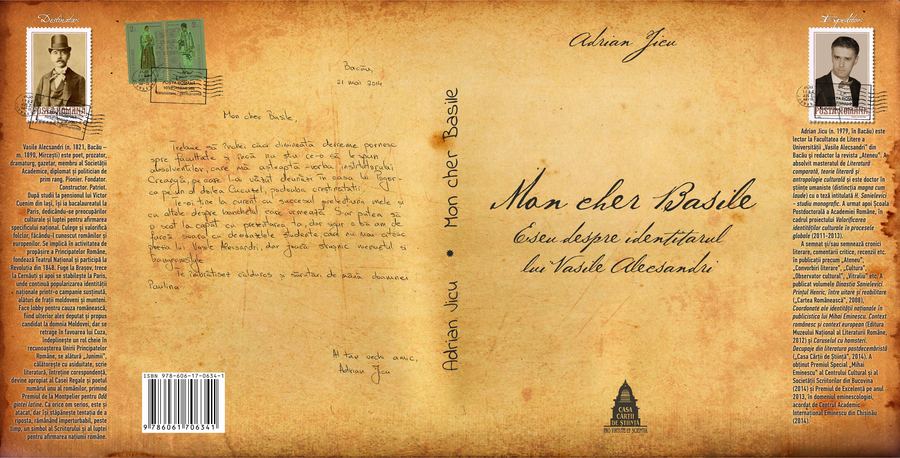 Destinatar:
Vasile Alecsandri (n. 1821, Bacău –
m. 1890, Mircești) este poet, prozator,
dramaturg, gazetar, membru al Societății
Academice, diplomat și politician de
prim rang. Pionier. Fondator.
Constructor. Patriot.
După studii la pensionul lui Victor
Cuenim din Iași, își ia bacalaureatul la
Paris, dedicându-se preocupărilor
culturale și luptei pentru afirmarea
specificului național. Culege și valorifică
folclor, făcându-l cunoscut românilor și
europenilor. Se implică în activitatea de
propășire a Principatelor Române,
fondează Teatrul Național și participă la
Revoluția din 1848. Fuge la Brașov, trece
la Cernăuți și apoi se stabilește la Paris,
unde continuă popularizarea identității
naționale printr-o campanie susținută,
alături de frații moldoveni și munteni.
Face lobby pentru cauza românească,
fiind ulterior ales deputat și propus
candidat la domnia Moldovei, dar se
retrage în favoarea lui Cuza,
îndeplinește un rol cheie în
recunoașterea Unirii Principatelor
Române, se alătură „Junimii”,
călătorește cu asiduitate, scrie
literatură, întreține corespondență,
devine apropiat al Casei Regale și poetul
numărul unu al românilor, primind
Premiul de la Montpelier pentru Odă
gintei latine. Ca orice om serios, este și
atacat, dar își stăpânește tentația de a
riposta, rămânând imperturbabil, peste
timp, un simbol al Scriitorului și al luptei
pentru afirmarea națiunii române.
Bacău,
21 mai 2014
Mon cher Basile,
Trebuie să închei căci dimineață devreme pornesc
spre facultate și încă nu știu ce-o să le spun
absolvenților, care mă așteaptă
Te-oi ține la curent cu succesul prelegerii mele și
cu altele despre banchetul care urmează. S-ar putea să
Te îmbrățișez călduros și sărutări de mână doamnei
Paulina
Al tău vechi amic,
Adrian Jicu
ISBN 978-606-17-0634-1
9 786061 706341
Adrian Jicu • Mon cher Basile
Adrian Jicu
Mon cher Basile
Eseu despre identitarul
lui Vasile Alecsandri
CASA
CĂRȚII
DE ȘTIINȚĂ
PRO VIRTUTE ET SCIENTIA
Expeditor:
Adrian Jicu (n. 1979, în Bacău) este
lector la Facultatea de Litere a
Universității „Vasile Alecsandri” din
Bacău și redactor la revista „Ateneu”. A
absolvit masteratul de Literatură
comparată, teorie literară și
antropologie culturală și este doctor în
științe umaniste (distincția magna cum
laude) cu o teză intitulată H. Sanielevici
– studiu monografic. A urmat apoi Școala
Postdoctorală a Academiei Române, în
cadrul proiectului Valorificarea
identităților culturale în procesele
globale (2011-2013).
A semnat și/sau semnează cronici
literare, comentarii critice, recenzii etc.
în publicații precum „Ateneu”,
„Convorbiri literare”, „Cultura”,
„Observator cultural”, „Vitraliu” etc. A
publicat volumele Dinastia Sanielevici.
Prințul Henric, între uitare și reabilitare
(„Cartea Românească”, 2008),
Coordonate ale identității naționale în
publicistica lui Mihai Eminescu. Context
românesc și context european (Editura
Muzeului Național al Literaturii Române,
2012) și Caruselul cu hamsteri.
Decupaje din literatura postdecembristă
(„Casa Cărții de Știință”, 2014). A
obținut Premiul Special „Mihai
Eminescu” al Centrului Cultural și al
Societății Scriitorilor din Bucovina
(2014) și Premiul de Excelență pe anul
2013, în domeniul eminescologiei,
acordat de Centrul Academic
Internațional Eminescu din Chișinău
(2014).